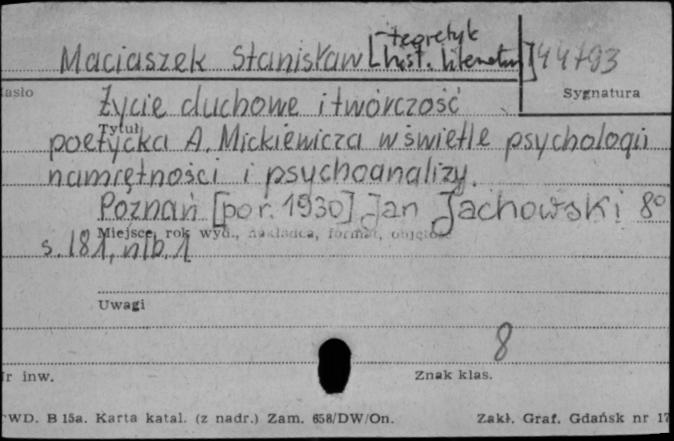 Maciaszek Stanisław [teoretyk
hist. literatury] 44793
asło
Sygnatura
Życie duchowe i twórczość
Tytuł
poetycka A. Mickiewicza w świetle psychologii
namiętności i psychoanalizy.
Poznań [po r. 1930] Jan Jachowski 8°
Miejsce, rok wyd., nakładca, format, objętość
s. 181, nlb. 1
Uwagi
8
r inw.
Znak klas.
WD. B 15a. Karta katal. (z nadr.) Zam. 658/DW/On.
Zakł. Graf. Gdańsk nr 17